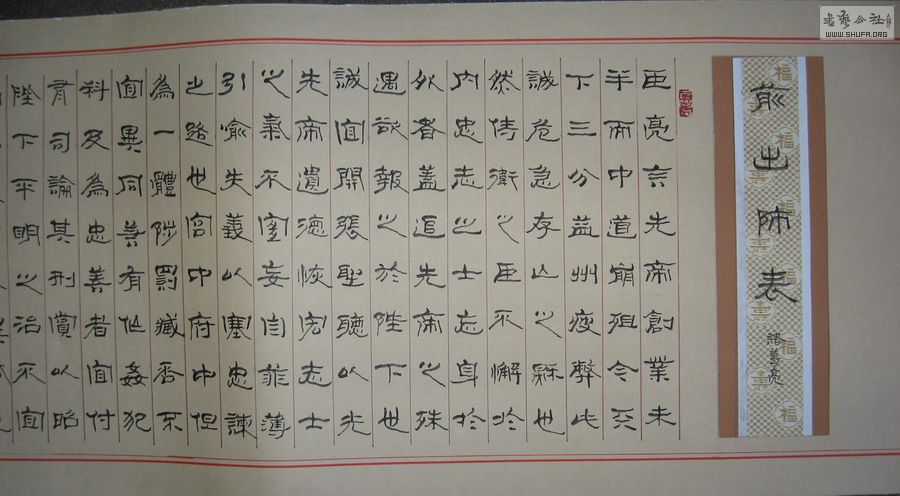 前出師表
諸葛亮
臣亮言先帝創業未
半而中道崩殂今天
下三分益州疲弊此
誠危急存亡之秋也
然侍衛之臣不懈於
内忠志之士忘身於
外者蓋追先帝之殊
遇欲報之於陛下也
誠宜開張聖聽以光
先帝遺德恢宏志士
之氣不宜妄自菲薄
引喻失義以塞忠諫
之路也宮中府中俱
為一體陟罰臧否不
宜異同若有作姦犯
科及為忠善者宜付
有司論其刑賞以昭
陛下平明之治不宜
書藝公社
WWW.SHUFA.ORG